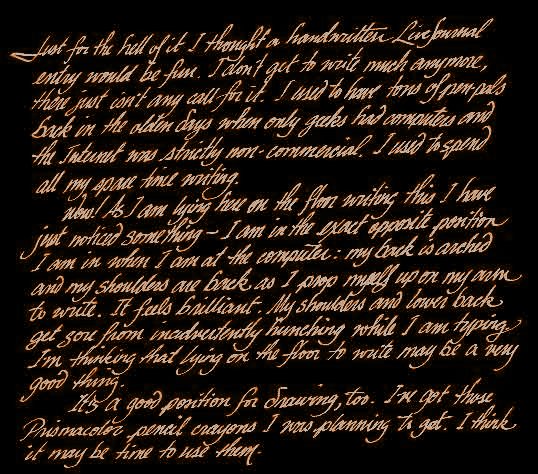 Just for the hell of it I thought a handwritten LiveJournal
entry would be fun. I don't get to write much anymore,
there just isn't any call for it. I used to have tons of pen-pals
back in the olden days when only geeks had computers and
the Internet was strictly non-commercial. I used to spend
all my spare time writing.
Wow! As I am lying here on the floor writing this I have
just noticed something - I am in the exact opposite position
I am in when I am at the computer: my back is arched
and my shoulders are back as I prop myself up on my arm
to write. It feels brilliant. My shoulders and lower back
get sore from inadvertently hunching while I am typing.
I'm thinking that lying on the floor to write may be a very
good thing.
It's a good position for drawing, too. I've got those
Prismacolor pencil crayons I was planning to get. I think
it may be time to use them.